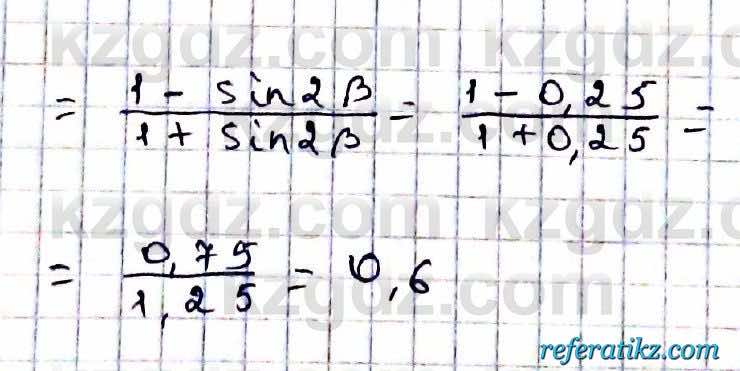 kzgdz.com kzgdz.com
= (1 - sin2β)/(1 + sin2β) = (1 - 0,25)/(1 + 0,25) =
kzgdz.com kzgdz.com
= 0,75/1,25 = 0,6
kzgdz.com kzgdz.com
referatikz.com